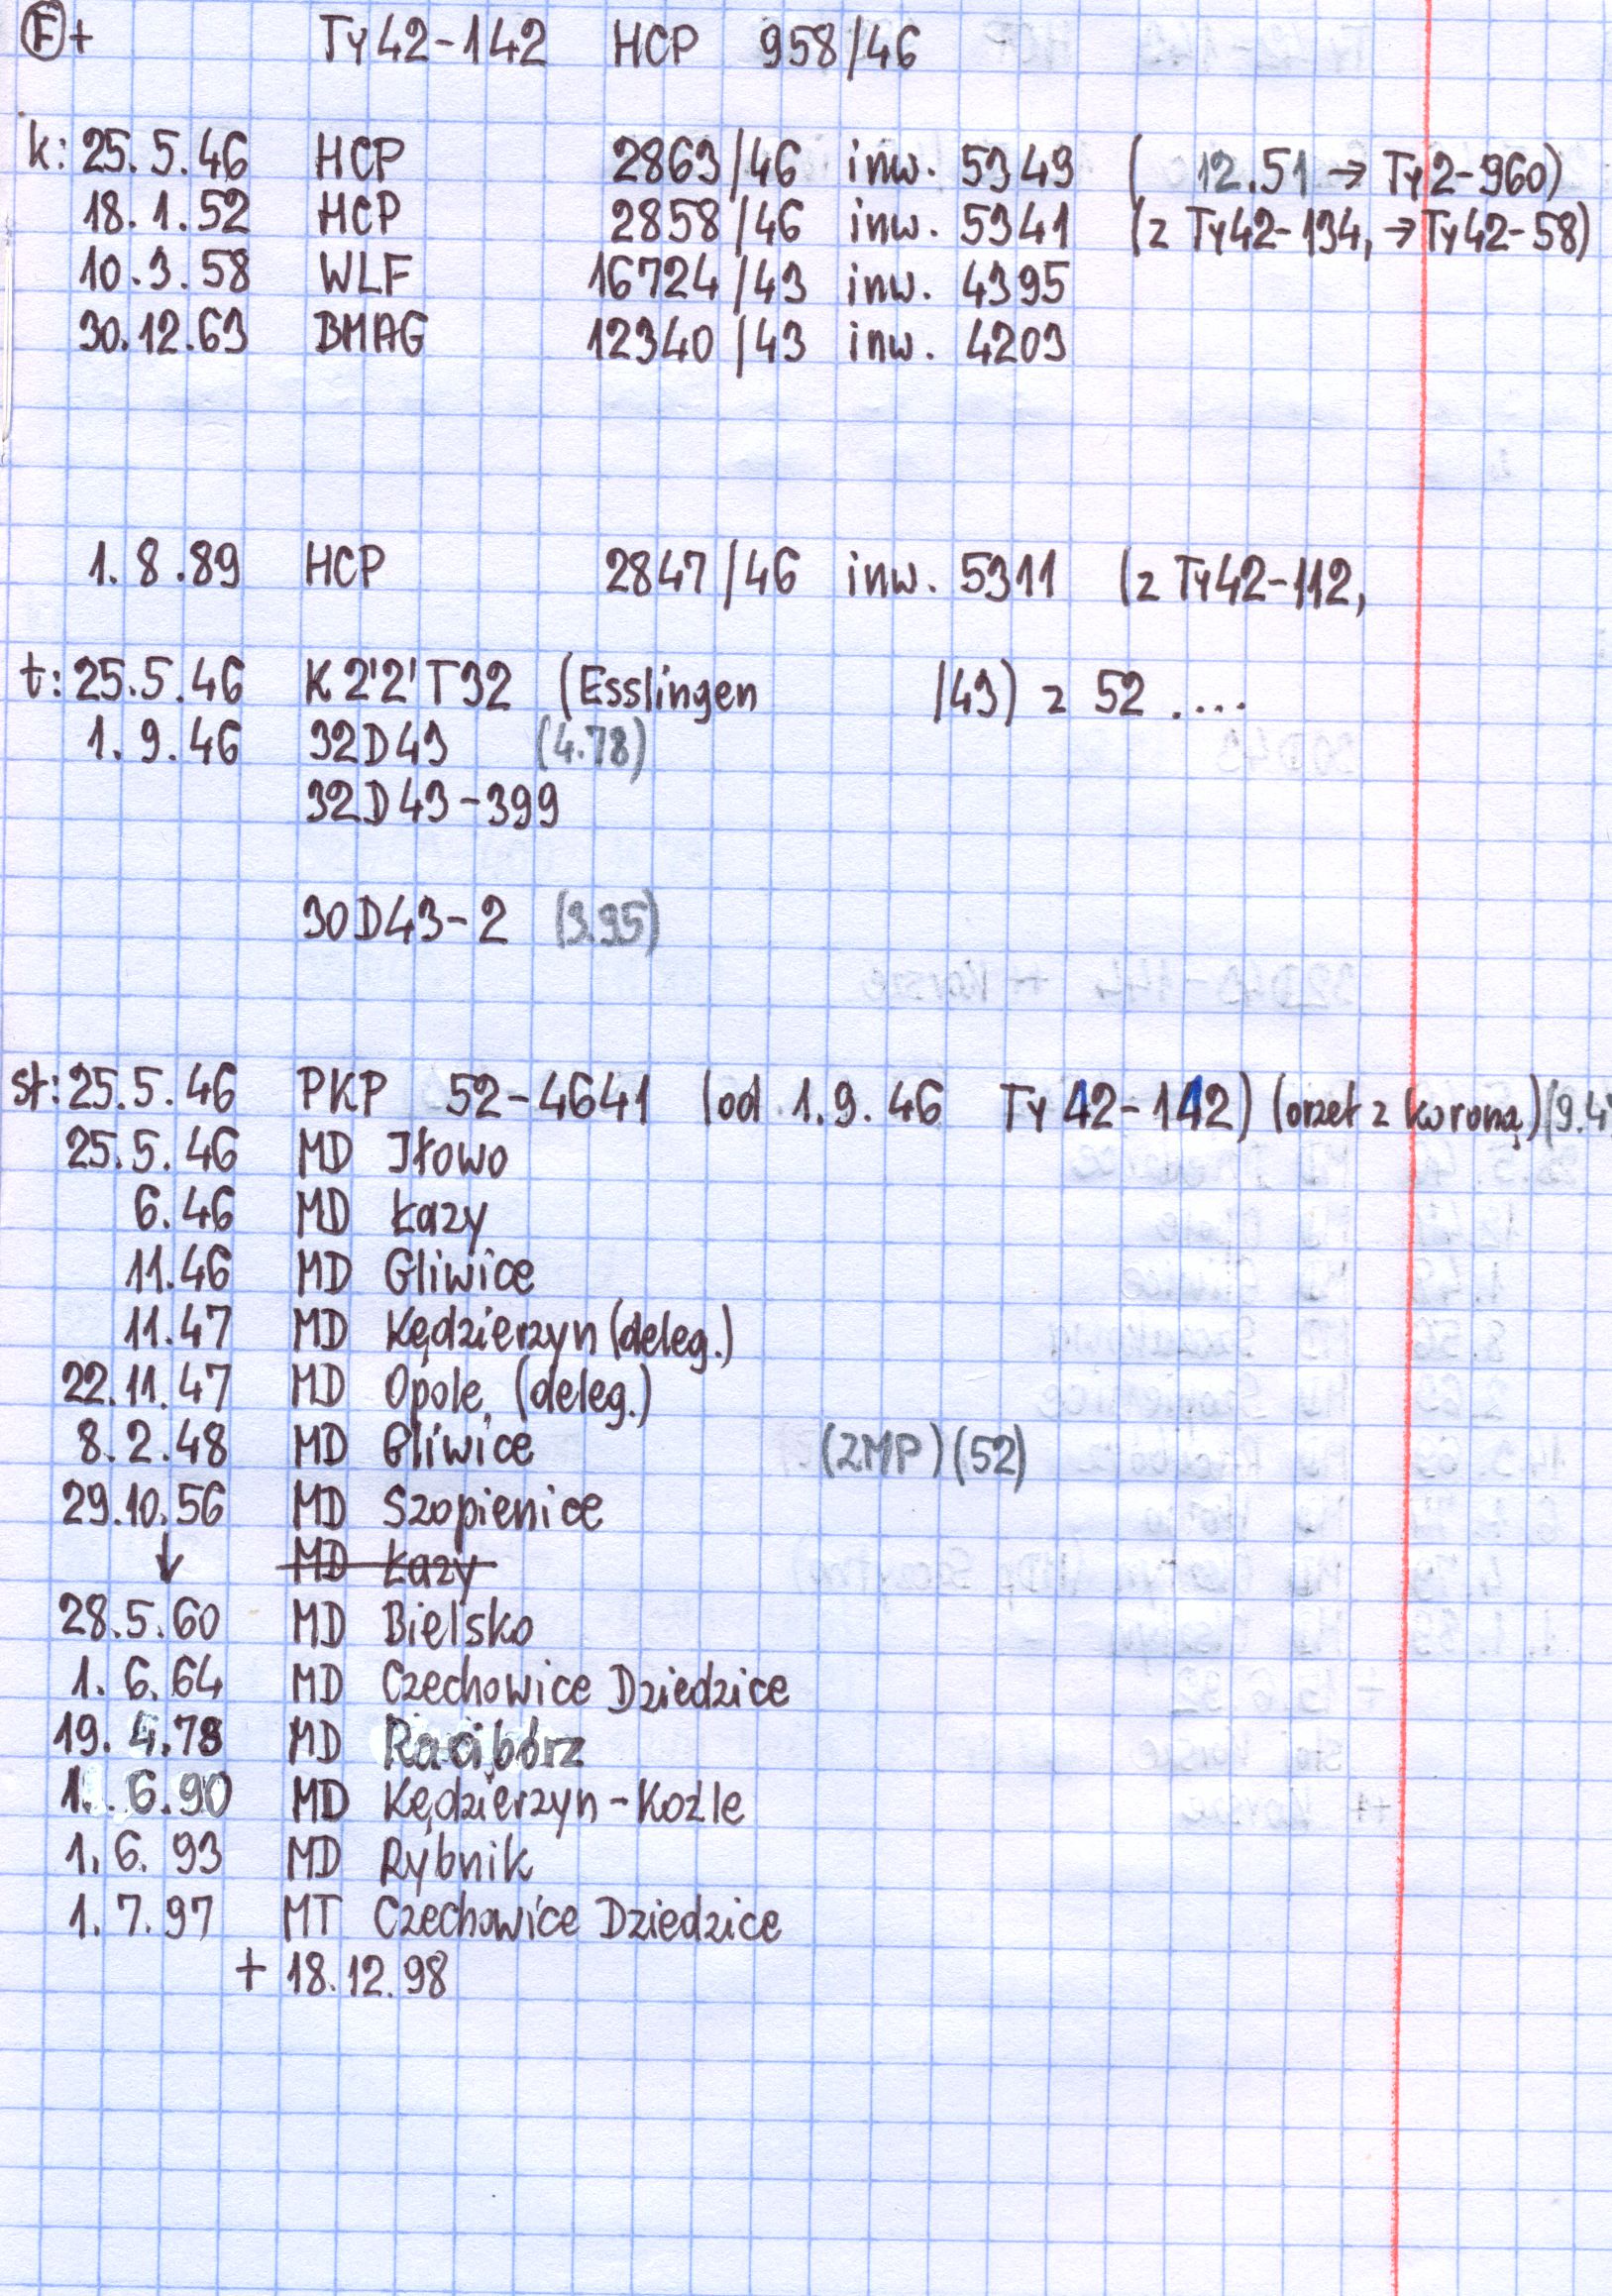 Ⓕ+ Ty42-142 HCP 958/46
k: 25.5.46 HCP 2863/46 inw. 5349 ( 12.51 → Ty2-960)
18.1.52 HCP 2858/46 inw. 5341 (z Ty42-134, → Ty42-58)
10.3.58 WLF 16724/43 inw. 4395
30.12.63 BMAG 12340/43 inw. 4203
1.8.89 HCP 2847/46 inw. 5311 (z Ty42-112,
t: 25.5.46 K 2'2'T32 (Esslingen /43) z 52 ....
1.9.46 32D43 (4.78)
32D43-399
30D43-2 (3.95)
st: 25.5.46 PKP 52-4641 (od 1.9.46 Ty42-142) (orzeł z koroną) (9.4
25.5.46 MD Iłowo
6.46 MD Łazy
11.46 MD Gliwice
11.47 MD Kędzierzyn (deleg.)
22.11.47 MD Opole, (deleg.)
8.2.48 MD Gliwice (ZMP) (52)
29.10.56 MD Szopienice
↓ MD Łazy
28.5.60 MD Bielsko
1.6.64 MD Czechowice Dziedzice
19.4.78 MD Racibórz
1.6.90 MD Kędzierzyn-Koźle
1.6.93 MD Rybnik
1.7.97 MT Czechowice Dziedzice
+ 18.12.98